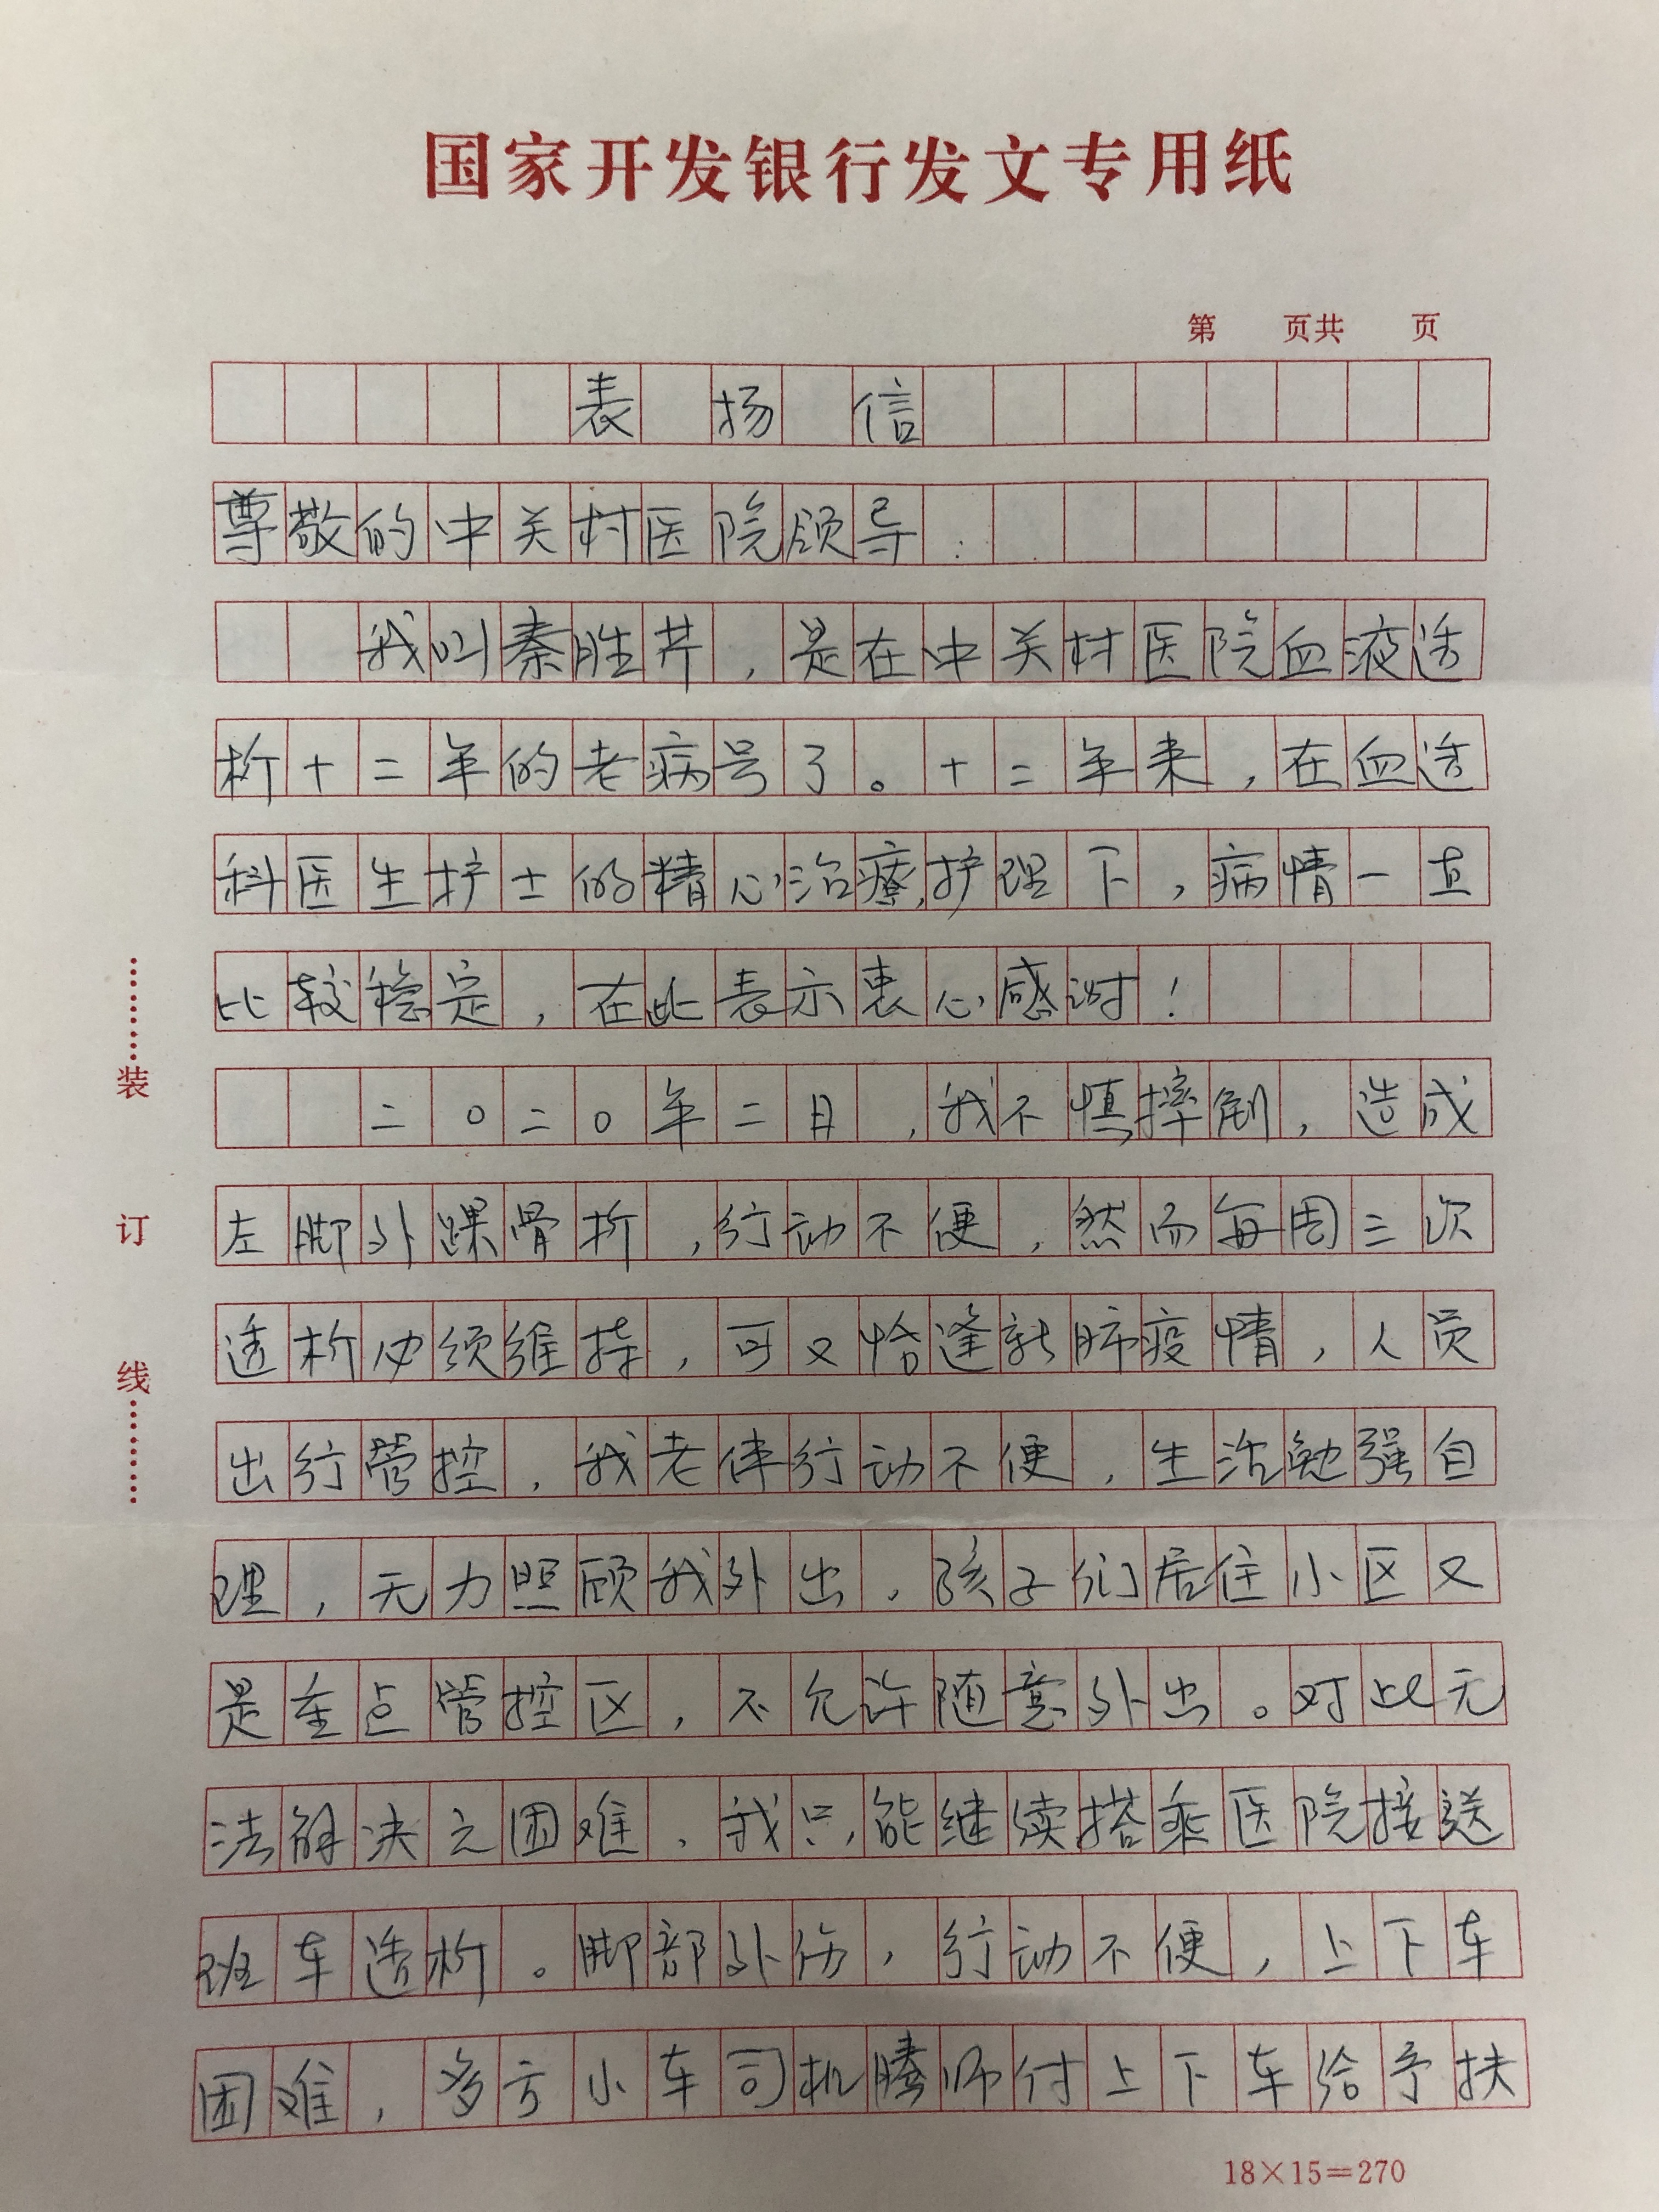 国家开发银行发文专用纸
第 页共 页
表 扬 信
尊敬的中关村医院领导：
我叫秦胜芹，是在中关村医院血液透
析十二年的老病号了。十二年来，在血透
科医生护士的精心治療护理下，病情一直
比较稳定，在此表示衷心感谢！
二〇二〇年二月，我不慎摔倒，造成
左脚外踝骨折，行动不便，然而每周三次
透析必须维持，可又恰逢新肺疫情，人员
出行管控，我老伴行动不便，生活勉强自
理，无力照顾我外出，孩子们居住小区又
是重点管控区，不允许随意外出。对此无
法解决之困难，我只能继续搭乘医院接送
班车透析。脚部外伤，行动不便，上下车
困难，多亏小车司机腾师付上下车给予扶
装
订
线
18×15=270